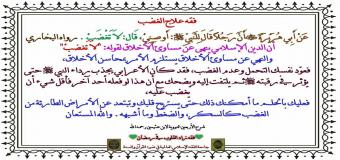 فقه علاج الغضب
عَنْ أَبِي هُرَيْرَةَ ﷺ أَنَّ رَجُلًا قَالَ لِلنَّبِيِّ ﷺ: أَوْصِنِي، قَالَ: لَا تَغْضَبْ. رواه البخاري
أن الدين الإسلامي ينهى عن مساوئ الأخلاق لقوله: "لا تغضب"
والنهي عن مساوئ الأخلاق يستلزم الأمر بمحاسن الأخلاق،
فعوّد نفسك التحمل وعدم الغضب، فقد كان الأعرابي يجذب رداء النبي ﷺ حتى
يؤثر في رقبته ﷺ ثم يلتفت إليه ويضحك مع أن هذا لو فعله أحد آخر فأقل شيء أن
يغضب عليه،
فعليك بالحلم ما أمكنك ذلك حتى يستريح قلبك وتبتعد عن الأمراض الطارئة من
الغضب كالسكر، والضغط وما أشبهه. والله المستعان
شرح الأربعين النووية لابن عثيمين رحمه الله